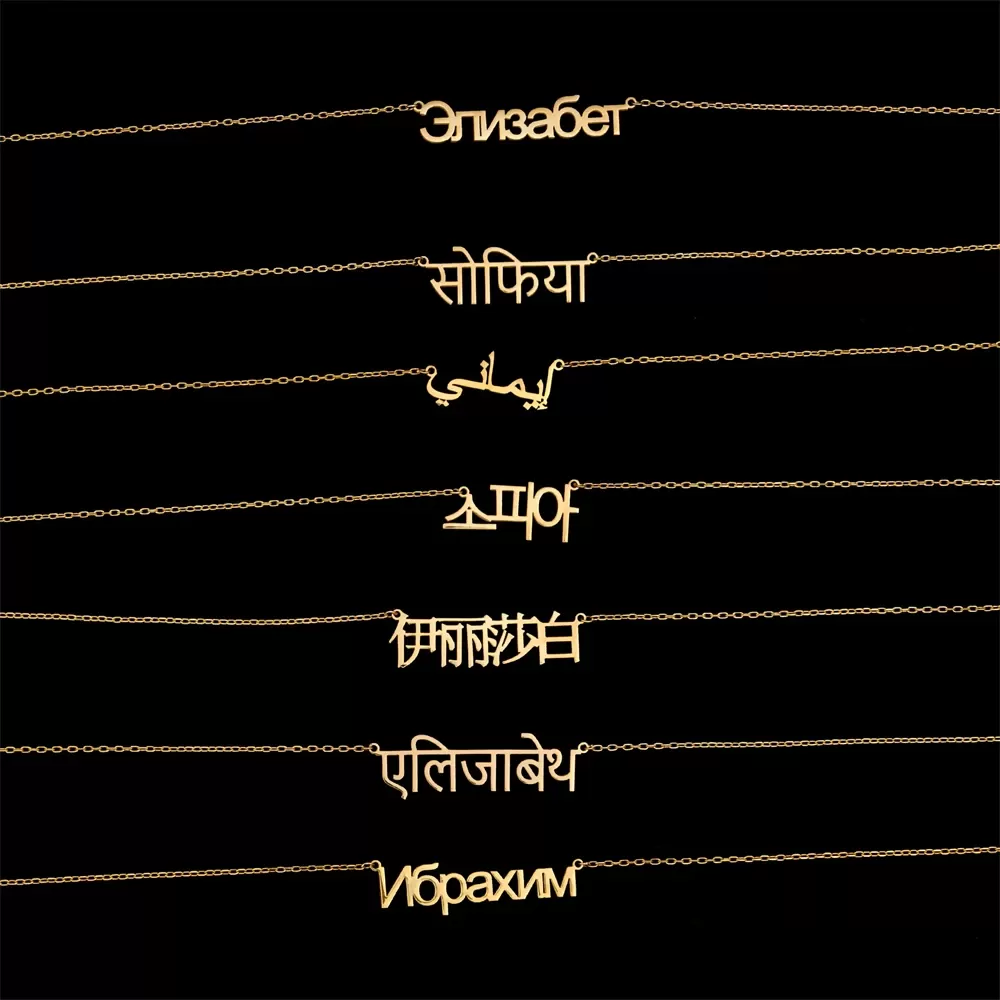 Элизабет
सोफिया
إيماني
소피아
伊丽莎白
एलिजाबेथ
Ибрахим